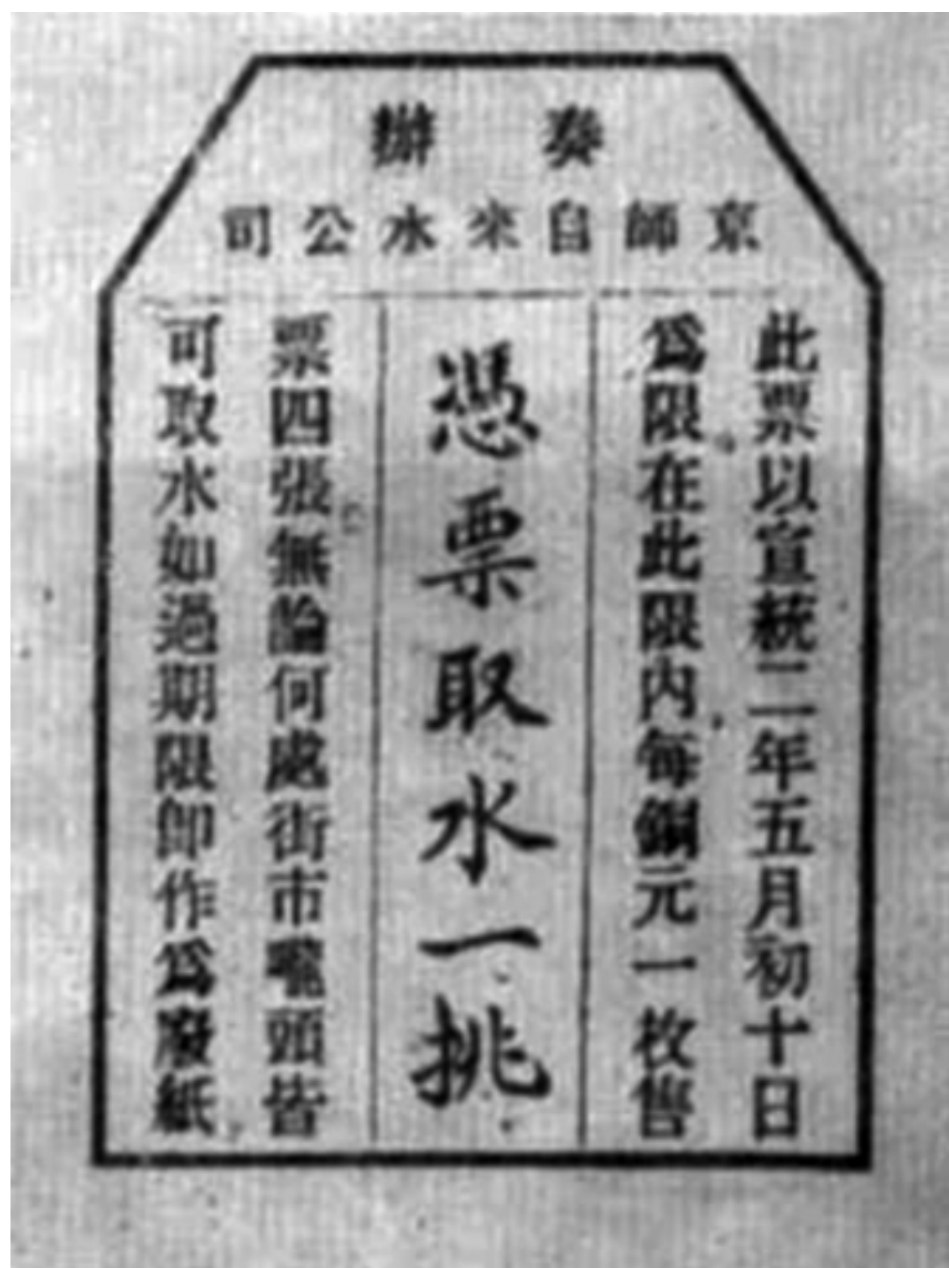 奏辦
京師自來水公司
此票以宣統二年五月初十日
爲限在此限內每銅元一枚售
憑票取水一挑
票四張無論何處街市龍頭皆
可取水如過期限卽作爲廢紙